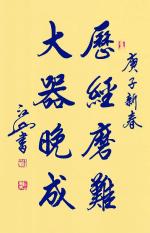 庚子新春
歷經磨難
大器晚成
江山書